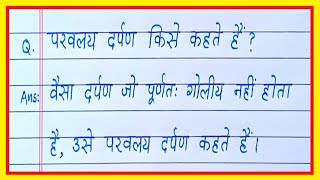 Q. परवलय दर्पण किसे कहते हैं ?
Ans: वैसा दर्पण जो पूर्णतः गोलीय नहीं होता
है, उसे परवलय दर्पण कहते हैं।